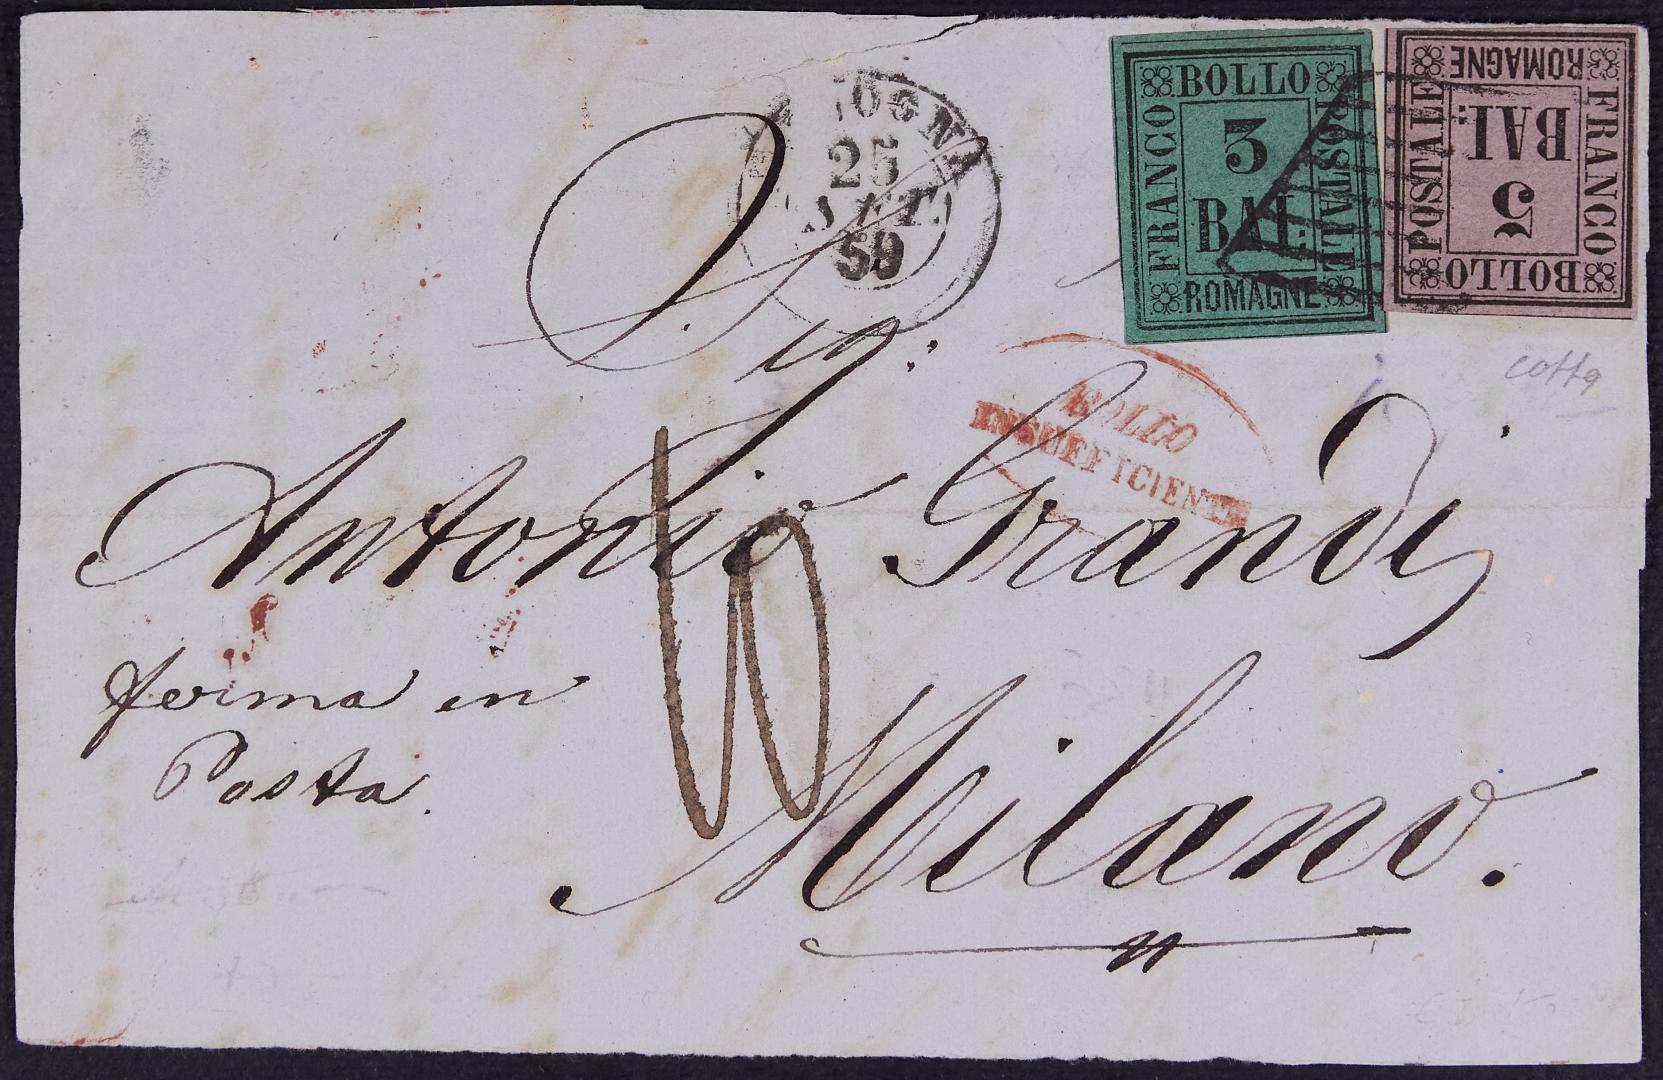 BOLOGNA
25
SET.
59
BOLLO
FRANCO
POSTALE
3
BAL:
ROMAGNE
BOLLO
FRANCO
POSTALE
5
BAI:
ROMAGNE
cotta
BOLLO
INSUFFICIENTE
Sig:
Antonio Grandi
ferma in
Posta.
Milano.